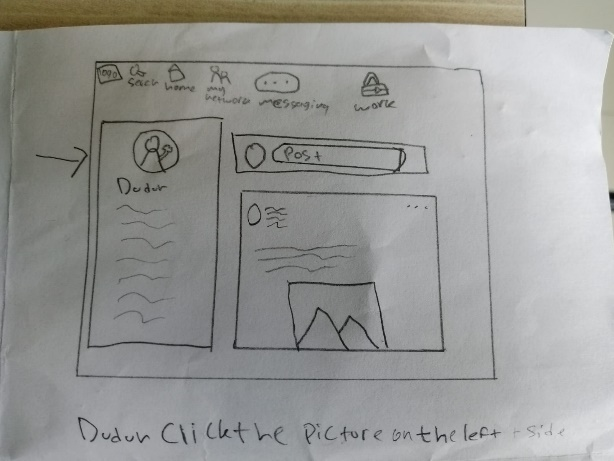 logo
serch home my network messaging work
Post
Dudun
Dudun Click the Picture on the left side